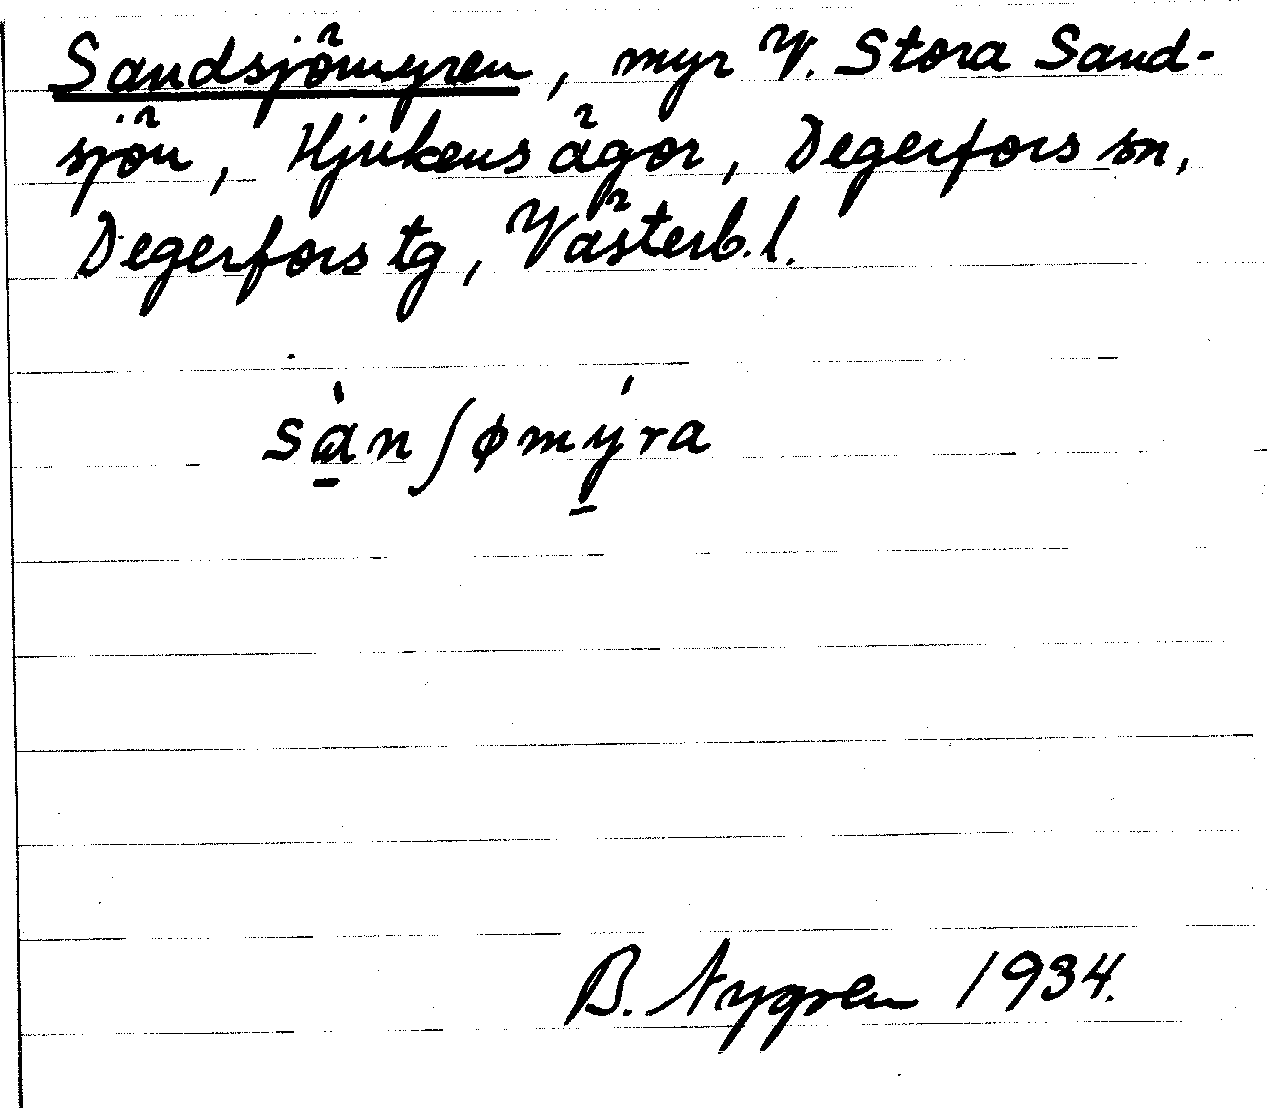 Sandsjömyren, myr V. Stora Sand-
sjön, Hjukens ägor, Degerfors sn,
Degerfors tg, Västerb.l.
sà̱nʃømý̱ra
B. Nygren 1934.